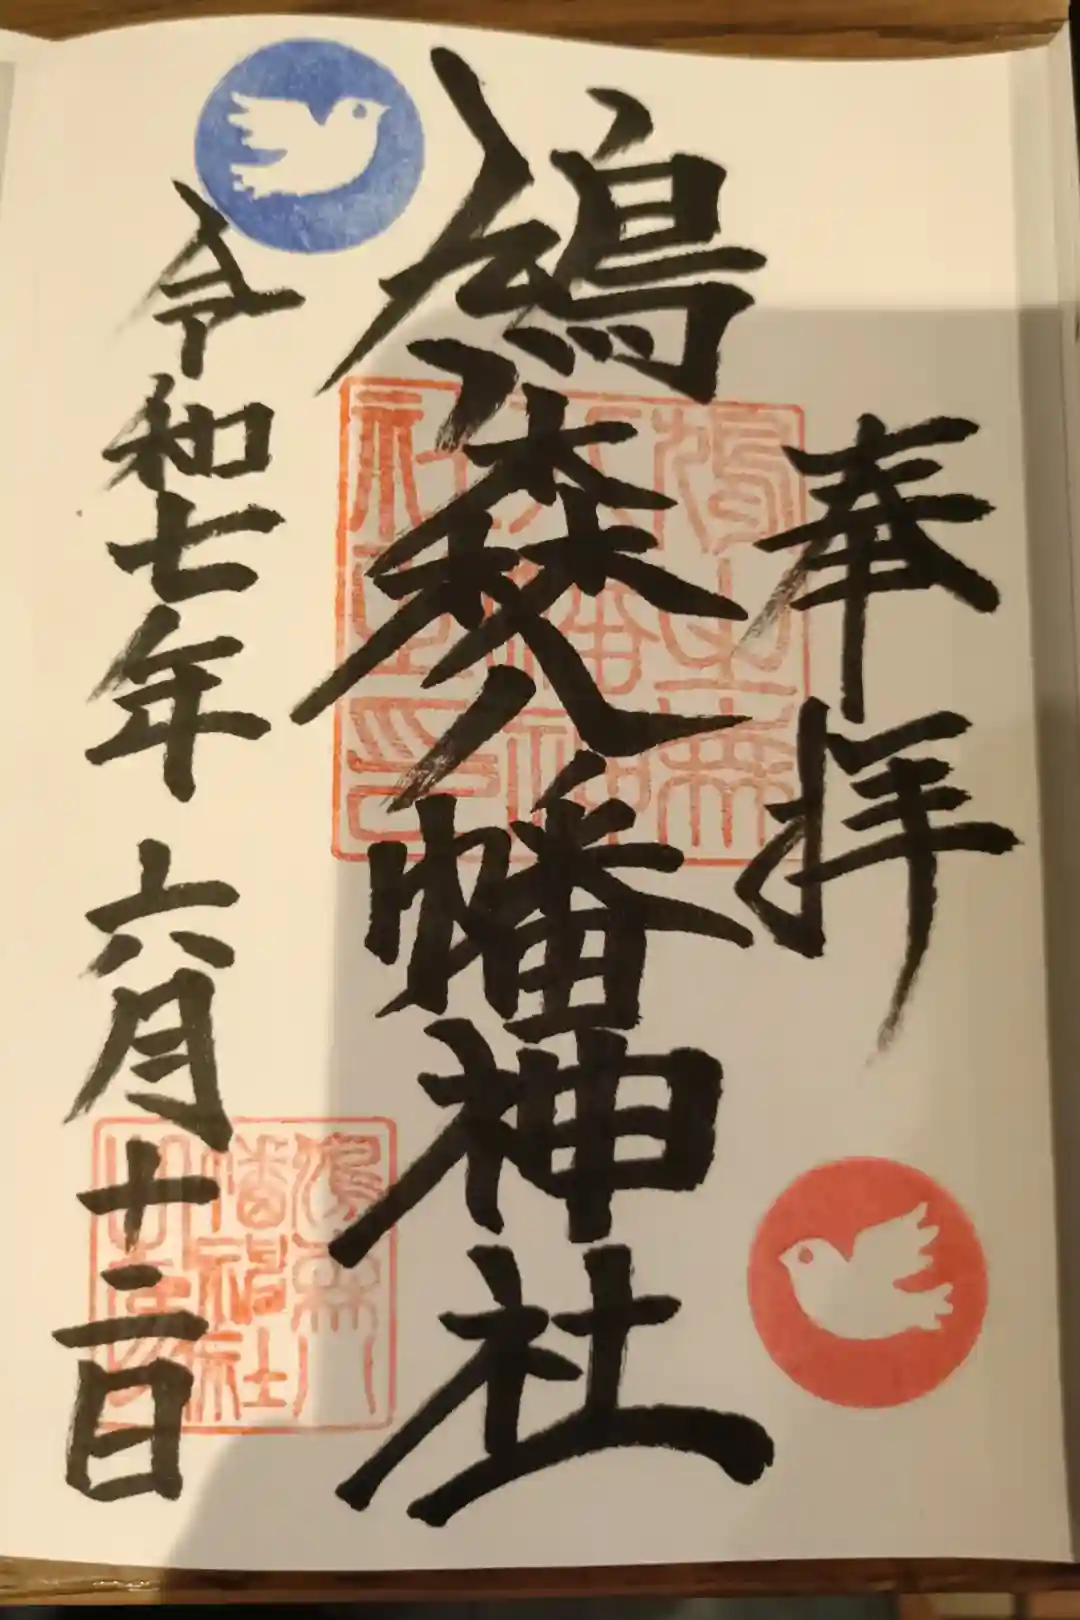 奉拝
鳩森八幡神社
令和七年六月十二日
鳩之森
八幡神
社之印
鳩森八
幡神社